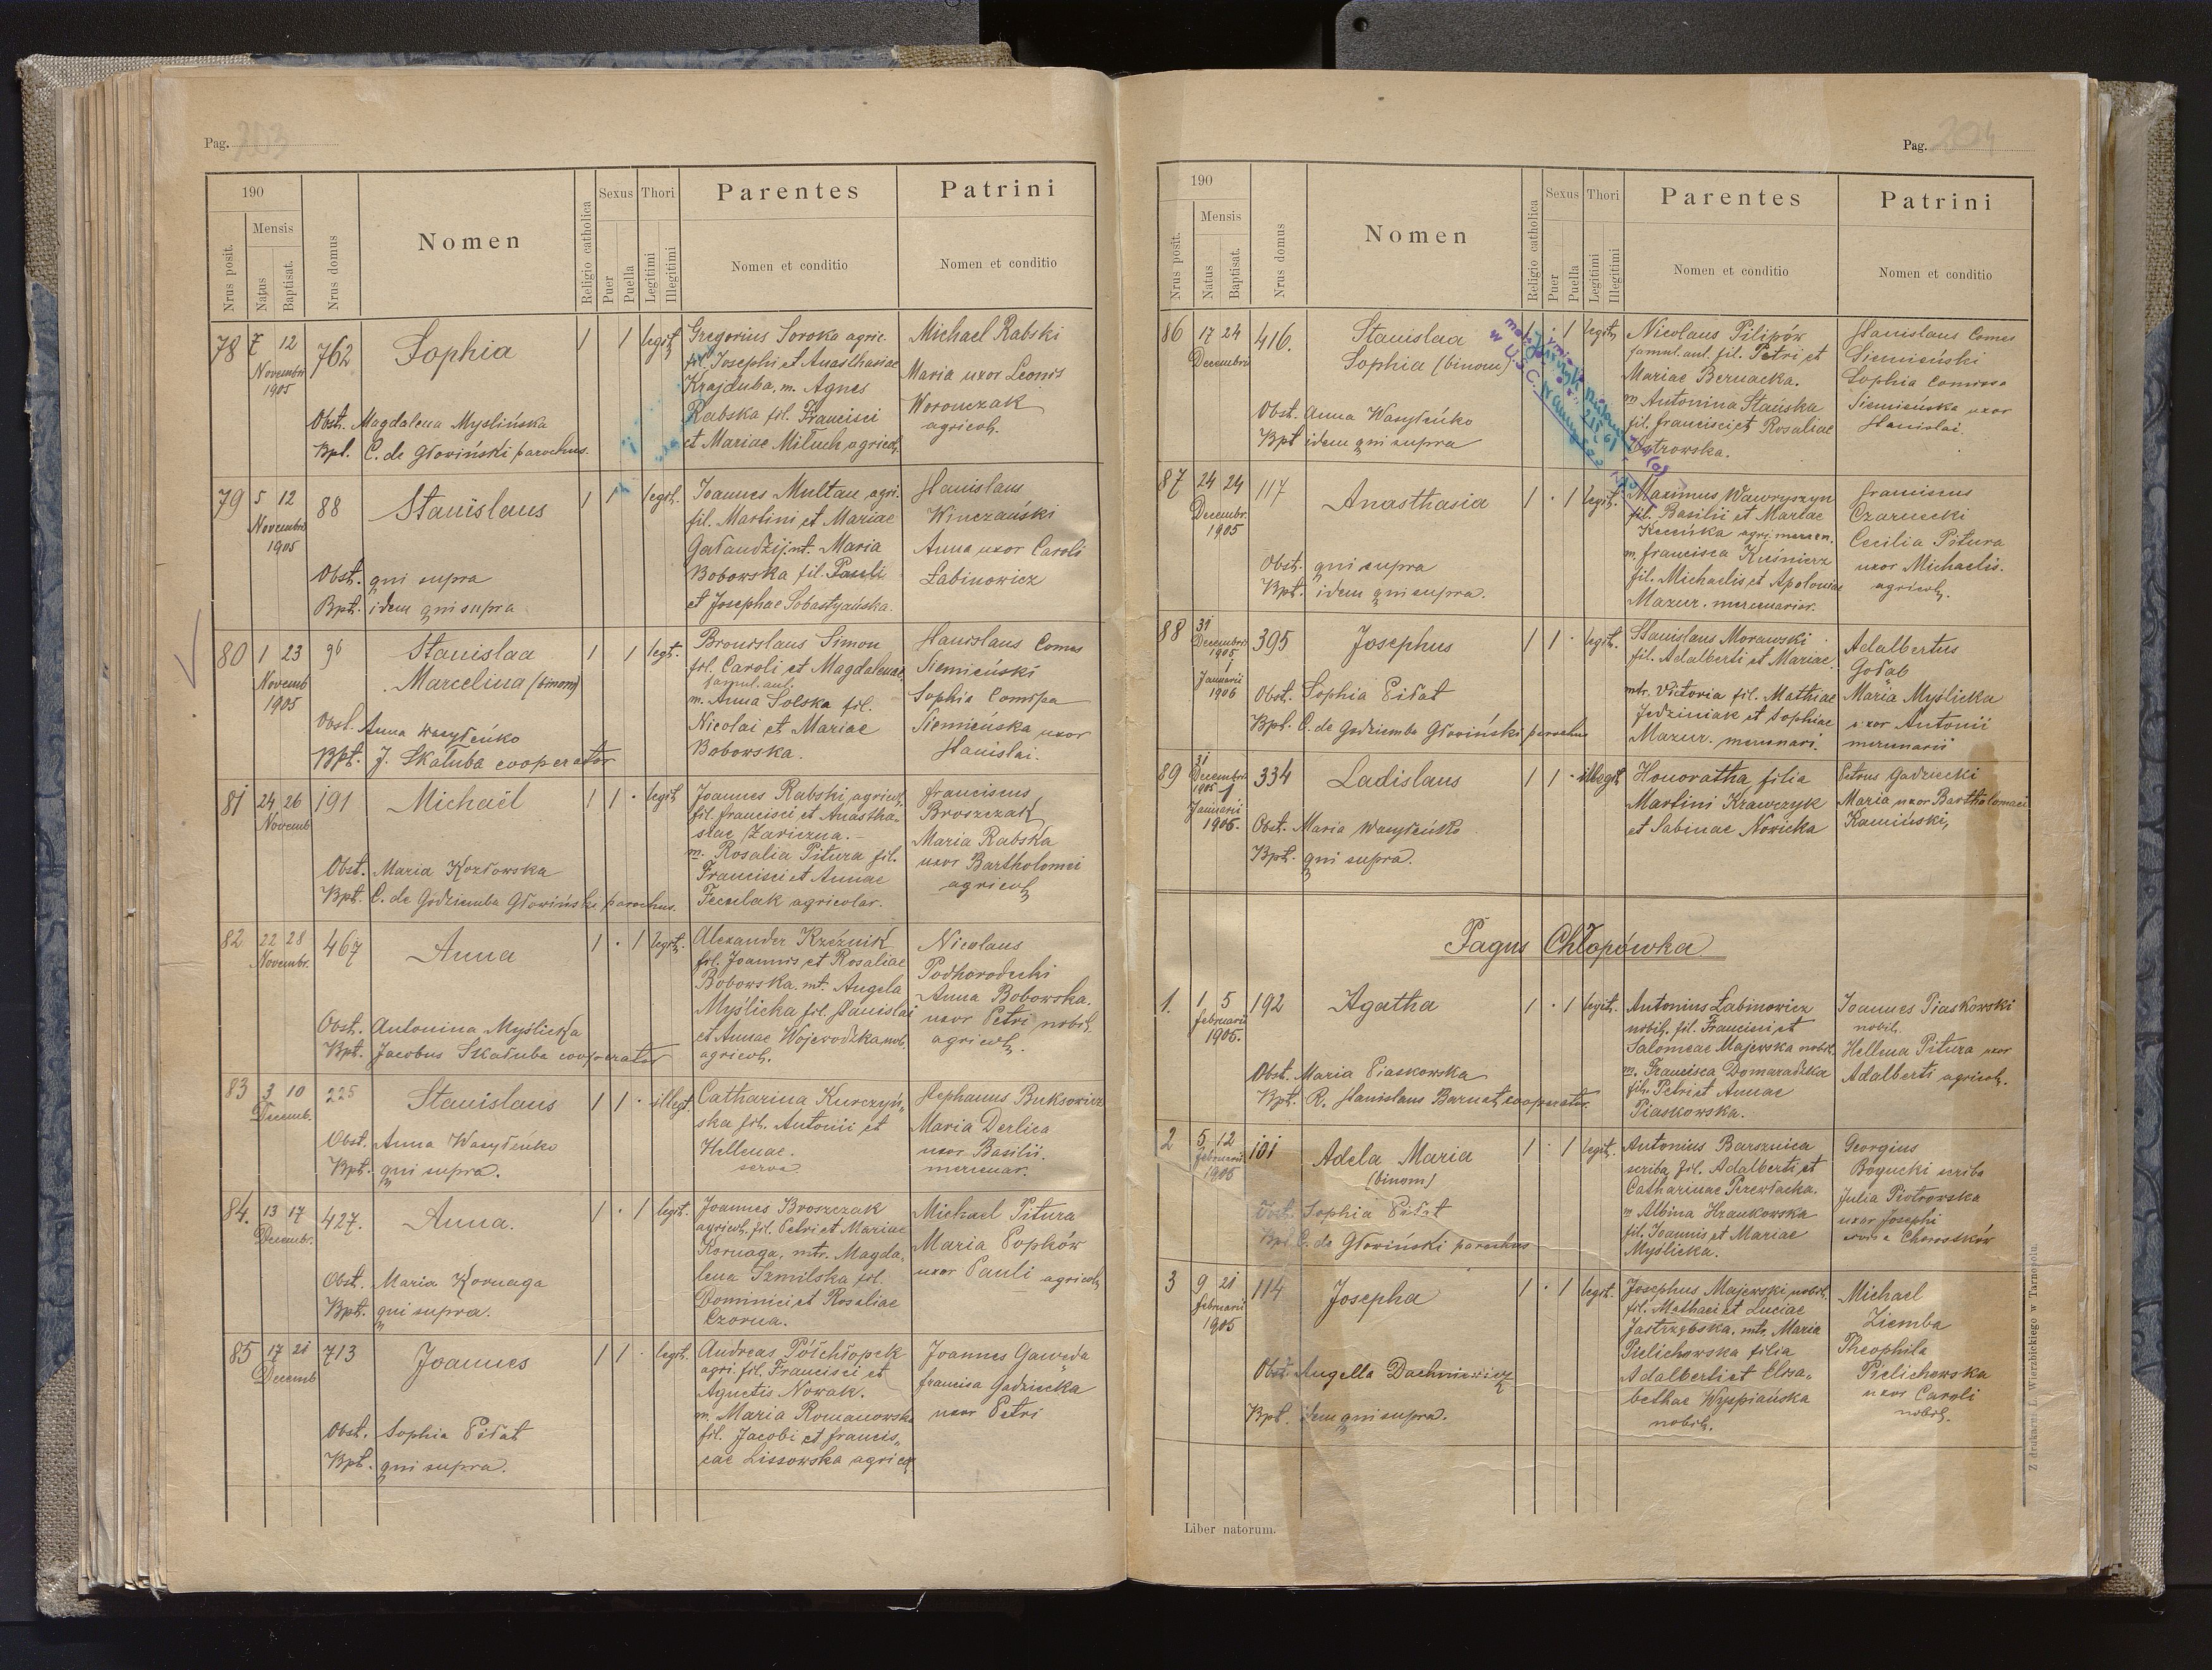 Pag. 203
190
Nrus posit.
Mensis
Natus
Baptisat.
Nrus domus
Nomen
Religio catholica
Sexus
Puer
Puella
Thori
Legitimi
Illegitimi
Parentes
Nomen et conditio
Patrini
Nomen et conditio
78 7 12 Novembri 1905 762 Sophia 1 1 legit
Obst. Magdalena Myslińska
Bpt. C. de Głowiński parochus.
Gregorius Soroka agric.
fil. Josephi et Anasthasiae
Krajduba, m. Agnes
Rabska fil. Francisci
et Mariae Miluch agricol.
Michael Rabski
Maria uxor Leonis
Woronczak
agricol.
79 5 12 Novembri 1905 88 Stanislaus 1 1 legit.
Obst. qui supra
Bpt. idem qui supra
Joannes Multan agri.
fil. Martini et Mariae
Gałandzij mt. Maria
Bobowska fil. Pauli
et Josephae Sobastyańska.
Stanislaus
Winczański
Anna uxor Caroli
Łabinowicz
80 1 23 Novemb 1905 96 Stanislaa
Marcelina (binom) 1 1 legt.
Obst. Anna Wasyleńko
Bpt. J. Skałuba cooperator
Bronislaus Simon
fil. Caroli et Magdalenae
famul. aul.
m. Anna Solska fil.
Nicolai et Mariae
Bobowska.
Stanislaus Comes
Siemieński
Sophia Comissa
Siemieńska uxor
Stanislai.
81 24 26 Novemb 191 Michaël 1 1 . legit
Obst. Maria Kozłowska
Bpt. C. de Godziemba Głowiński parochus.
Joannes Rabski agricol.
fil. Francisci et Anastha-
siae Zariczna.-
m. Rosalia Pitura fil.
Francisci et Annae
Fecułak agricolar.
Franciscus
Broszczak
Maria Rabska
uxor Bartholomei
agricol
82 22 28 Novembr. 467 Anna 1 . 1 legit.
Obst. Antonina Myślicka
Bpt. Jacobus Skałuba cooperator
Alexander Krzeźnik
fil. Joannis et Rosaliae
Bobowska. mt. Angela
Myślicka fil. Stanislai
et Annae Wojewódzka nob.
agricol.
Nicolaus
Podhorodecki
Anna Bobowska
uxor Petri nobil.
agricol.
83 3 10 Decemb. 225 Stanislaus 1 1 . illegt.
Obst. Anna Wasyleńko
Bpt. qui supra.
Catharina Kurczyń-
ska fil. Antonii et
Hellenae.
serva
Stephanus Buksowicz
Maria Derlica
uxor Basilii.
mercenar.
84. 13 17 Decembr. 427. Anna. 1 . 1 legit.
Obst. Maria Kornaga
Bpt. qui supra.
Joannes Broszczak
agricol. fil. Petri et Mariae
Kornaga, mtr. Magda-
lena Szmilska fil.
Dominici et Rosaliae
Czorna.
Michael Pitura
Maria Popków
uxor Pauli agricol
85 17 21 Decemb 713 Joannes 1 1 . legit.
Obst. Sophia Piłat
Bpt. qui supra.
Andreas Półchłopek
agri. fil. Francisci et
Agnetis Nowak.
m. Maria Romanowska
fil. Jacobi et Francis-
cae Lissowska agricol
Joannes Gawęda
Francisca Gadziecka
uxor Petri
Pag. 204
190
Nrus posit.
Mensis
Natus
Baptisat.
Nrus domus
Nomen
Religio catholica
Sexus
Puer
Puella
Thori
Legitimi
Illegitimi
Parentes
Nomen et conditio
Patrini
Nomen et conditio
86 17 24 Decembri 416. Stanislaa
Sophia (binom) 1 . 1 legit
Obst. Anna Wasyleńko
Bpt idem qui supra
Nicolaus Pilipów
famul. aul. fil. Petri et
Mariae Bernacka.
m Antonina Stańska
fil. Francisci et Rosaliae
Ostrowska.
Stanislaus Comes
Siemieński
Sophia Comissa
Siemieńska uxor
Stanislai.
87 24 24 Decembr. 1905 117 Anasthasia 1 . 1 legit.
Obst. qui supra
Bpt. idem qui supra.
Maximus Wawryszyn
fil. Basilii et Mariae
m. Francisca Kuśnierz
fil. Michaelis et Apoloniae
Mazur. mercenarior.
Franciscus
Czarnecki
Cecilia Pitura
uxor Michaelis.
agricol.
88 31 Decembris 1905 1 Januarii 1906 395 Josephus 1 1 . legit.
Obst. Sophia Piłat
Bpt. C. de Godziemba Głowiński parochus
Stanislaus Morawski
fil. Adalberti et Mariae.
mtr. Victoria fil. Mathiae
Jedziniak et Sophiae
Mazur. mercenari.
Adalbertus
Gołąb
Maria Myślicka
uxor Antonii
mercenarii
89 31 Decembri 1905 1 Januarii 1906. 334 Ladislaus 1 1 . illegit
Obst. Maria Wasyleńko
Bpt. qui supra.
Honoratha filia
Martini Krawczyk
et Sabinae Nowicka
Petrus Gadziecki
Maria uxor Bartholomaei
Kamiński,
Pagus Chłopówka
1. 1 5 Februarii 1905. 192 Agatha 1 . 1 legit.
Obst. Maria Piaskowska
Bpt. R. Stanislaus Barnat cooperator.
Antonius Łabinowicz
nobil. fil. Francisci et
Salomeae Majewska nobil.
m. Francisca Domaradzka
fil. Petri et Annae
Piaskowska.
Joannes Piaskowski
nobil.
Hellena Pitura uxor
Adalberti agricol.
2 5 12 Februarii 1905 101 Adela Maria
(binom) 1 . 1 legit.
Obst. Sophia Piłat
Bpt. C. de Głowiński parochus
Antonius Barsznica
scriba fil. Adalberti et
Catharinae Perewłacka.
m Albina Hrankowska
fil. Joannis et Mariae
Myślicka.
Georgius
Bogucki scriba
Julia Piotrowska
uxor Josephi
Chorostków
3 9 21 Februarii 1905 114 Josepha 1 . 1 legit.
Obst. Angella Dachniewicz
Bpt. idem qui supra.
Josephus Majewski nobil.
fil. Mathaei et Luciae
Jastrzębska, mtr. Maria
Pielichowska filia
Adalberti et Elisa-
bethae Wyspiańska
nobil.
Michael
Ziemba
Theophila
Pielichowska
uxor Caroli
nobil.
Liber natorum.
Z drukarni L. Wierzbickiego w Tarnopolu.